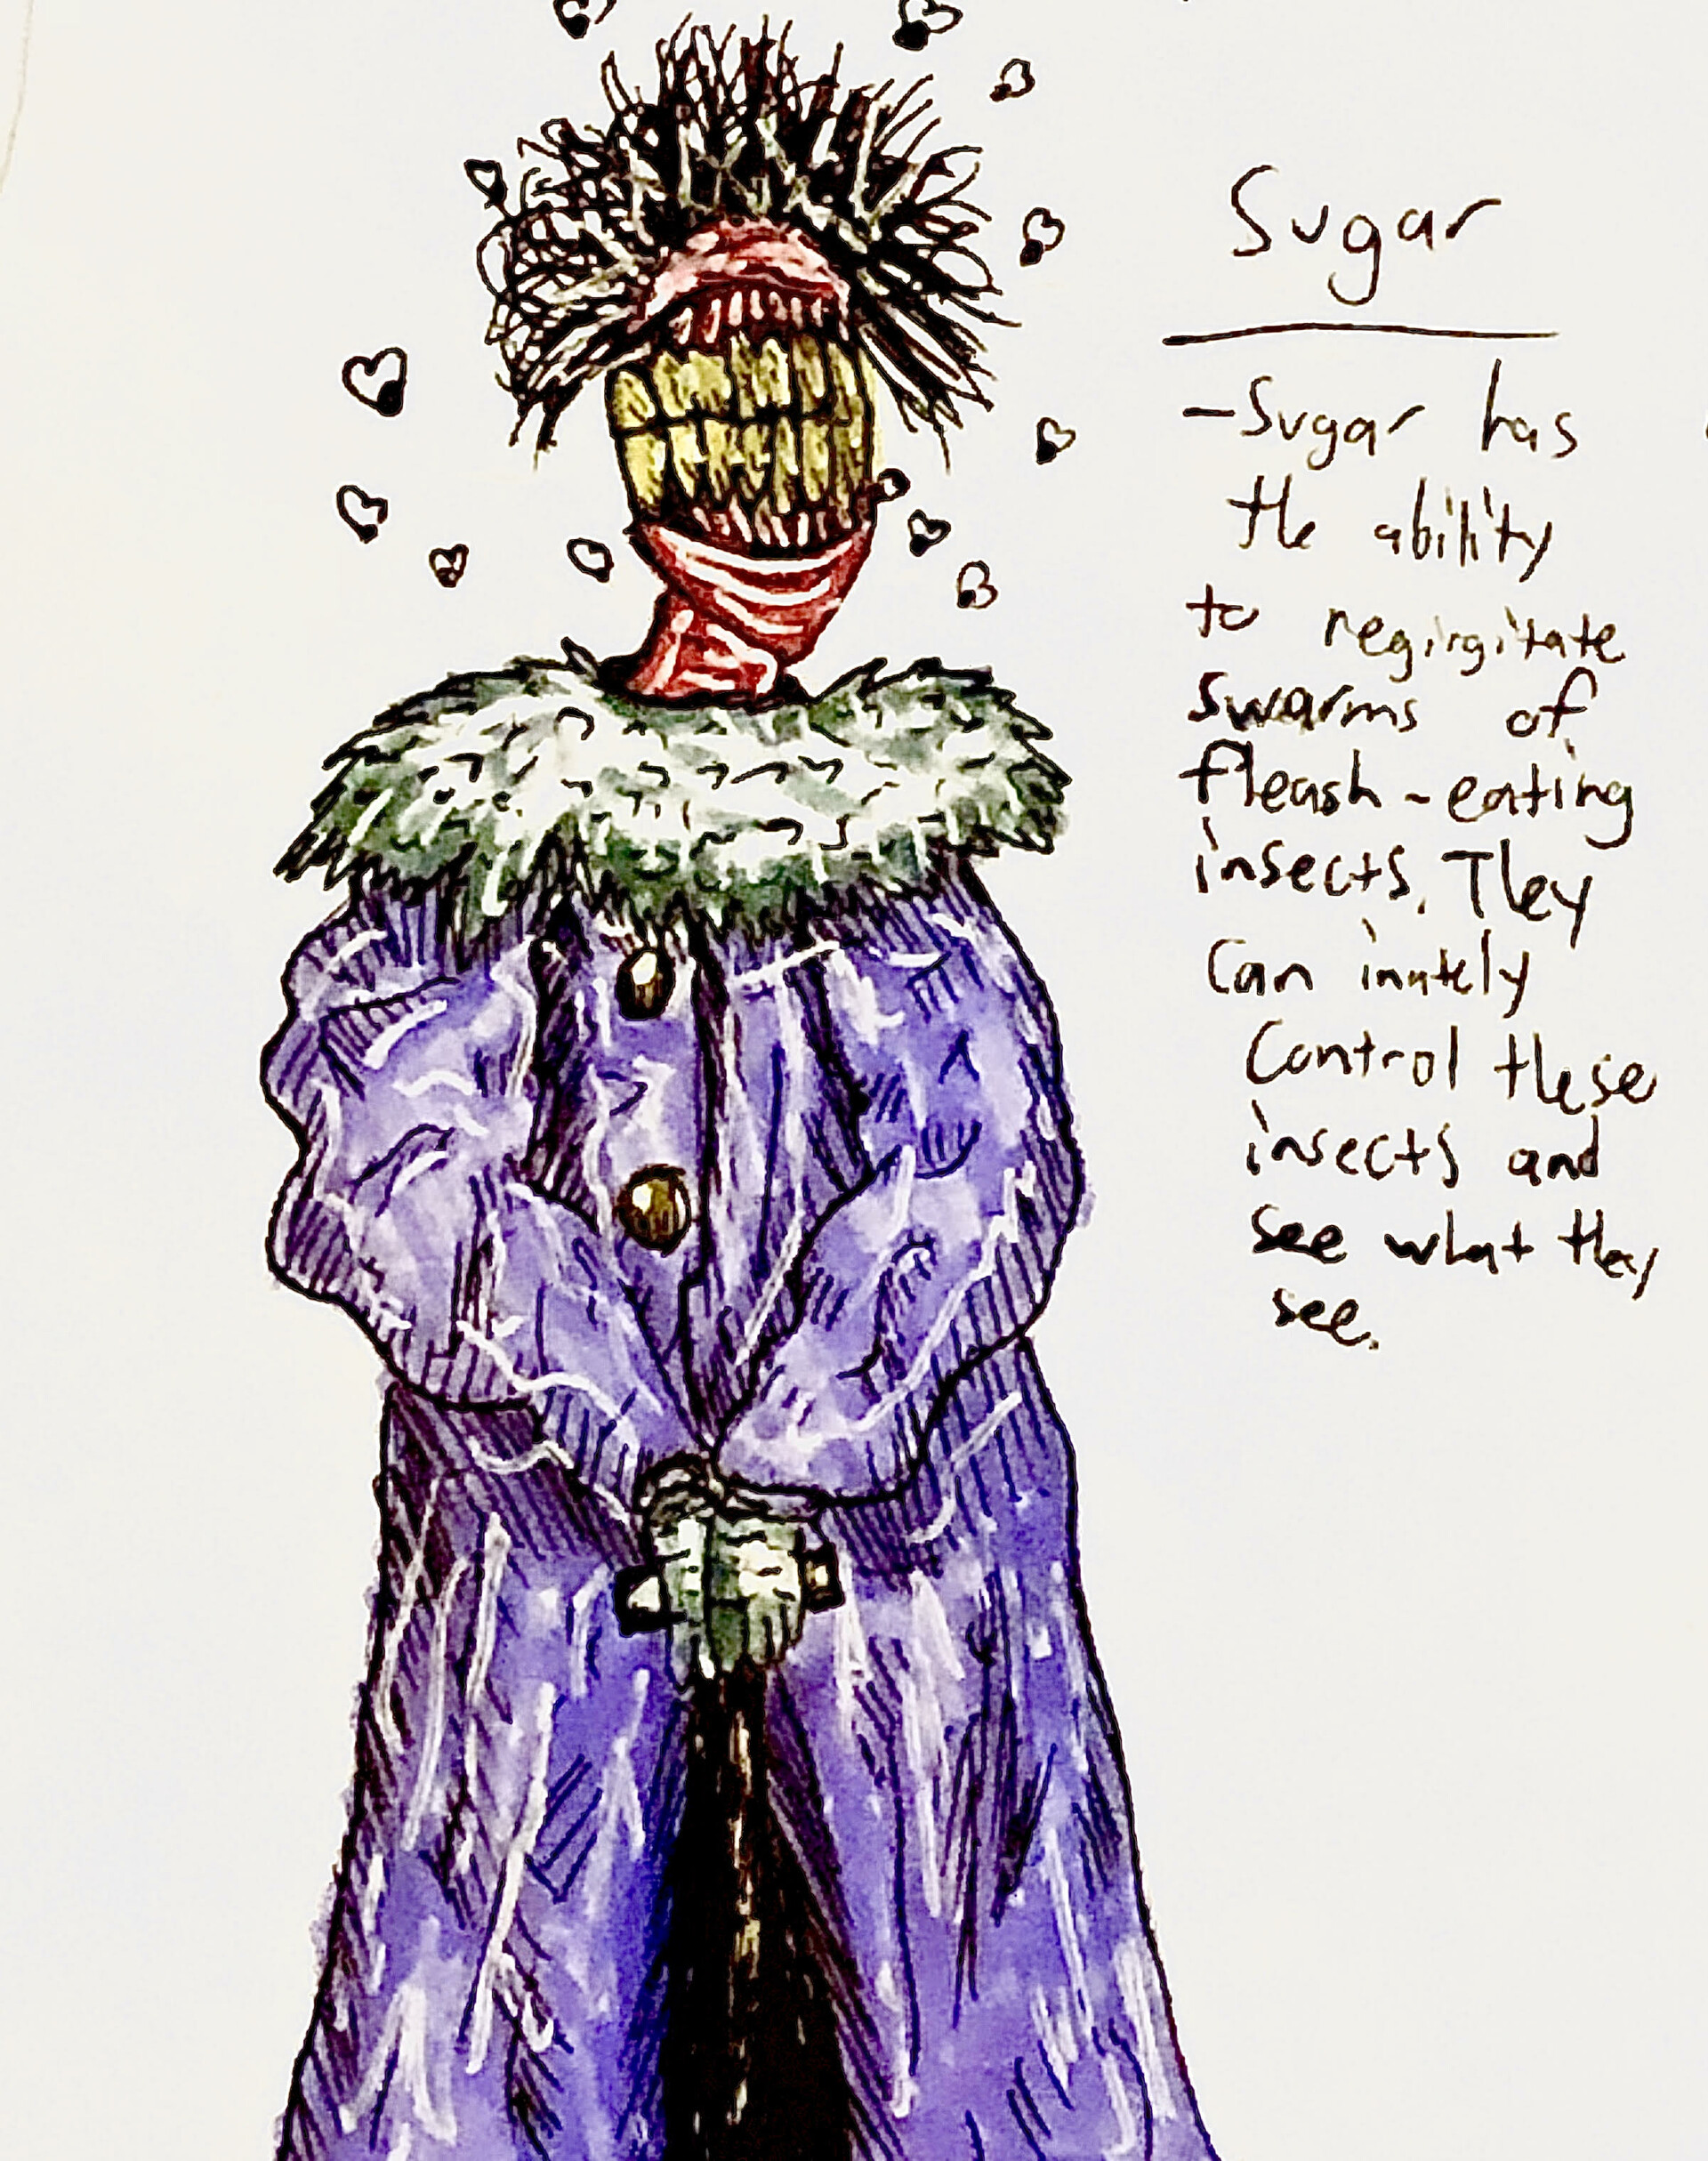 Sugar
-Sugar has
the ability
to regirgitate
swarms of
fleash-eating
insects. They
can inately
control these
insects and
see what they
see.